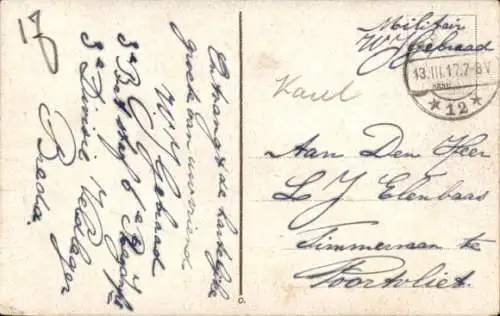 17
Ontvangt de hartelijke
groeten van uw vriend
W J Gebraad
3e Bat
3e Divisie Veldleger
Breda.
Militair
W J Gebraad
13.III.17.7-8V
* 12 *
Karel
Aan Den Heer
L J Elenbaas
Timmerman te
Poortvliet.